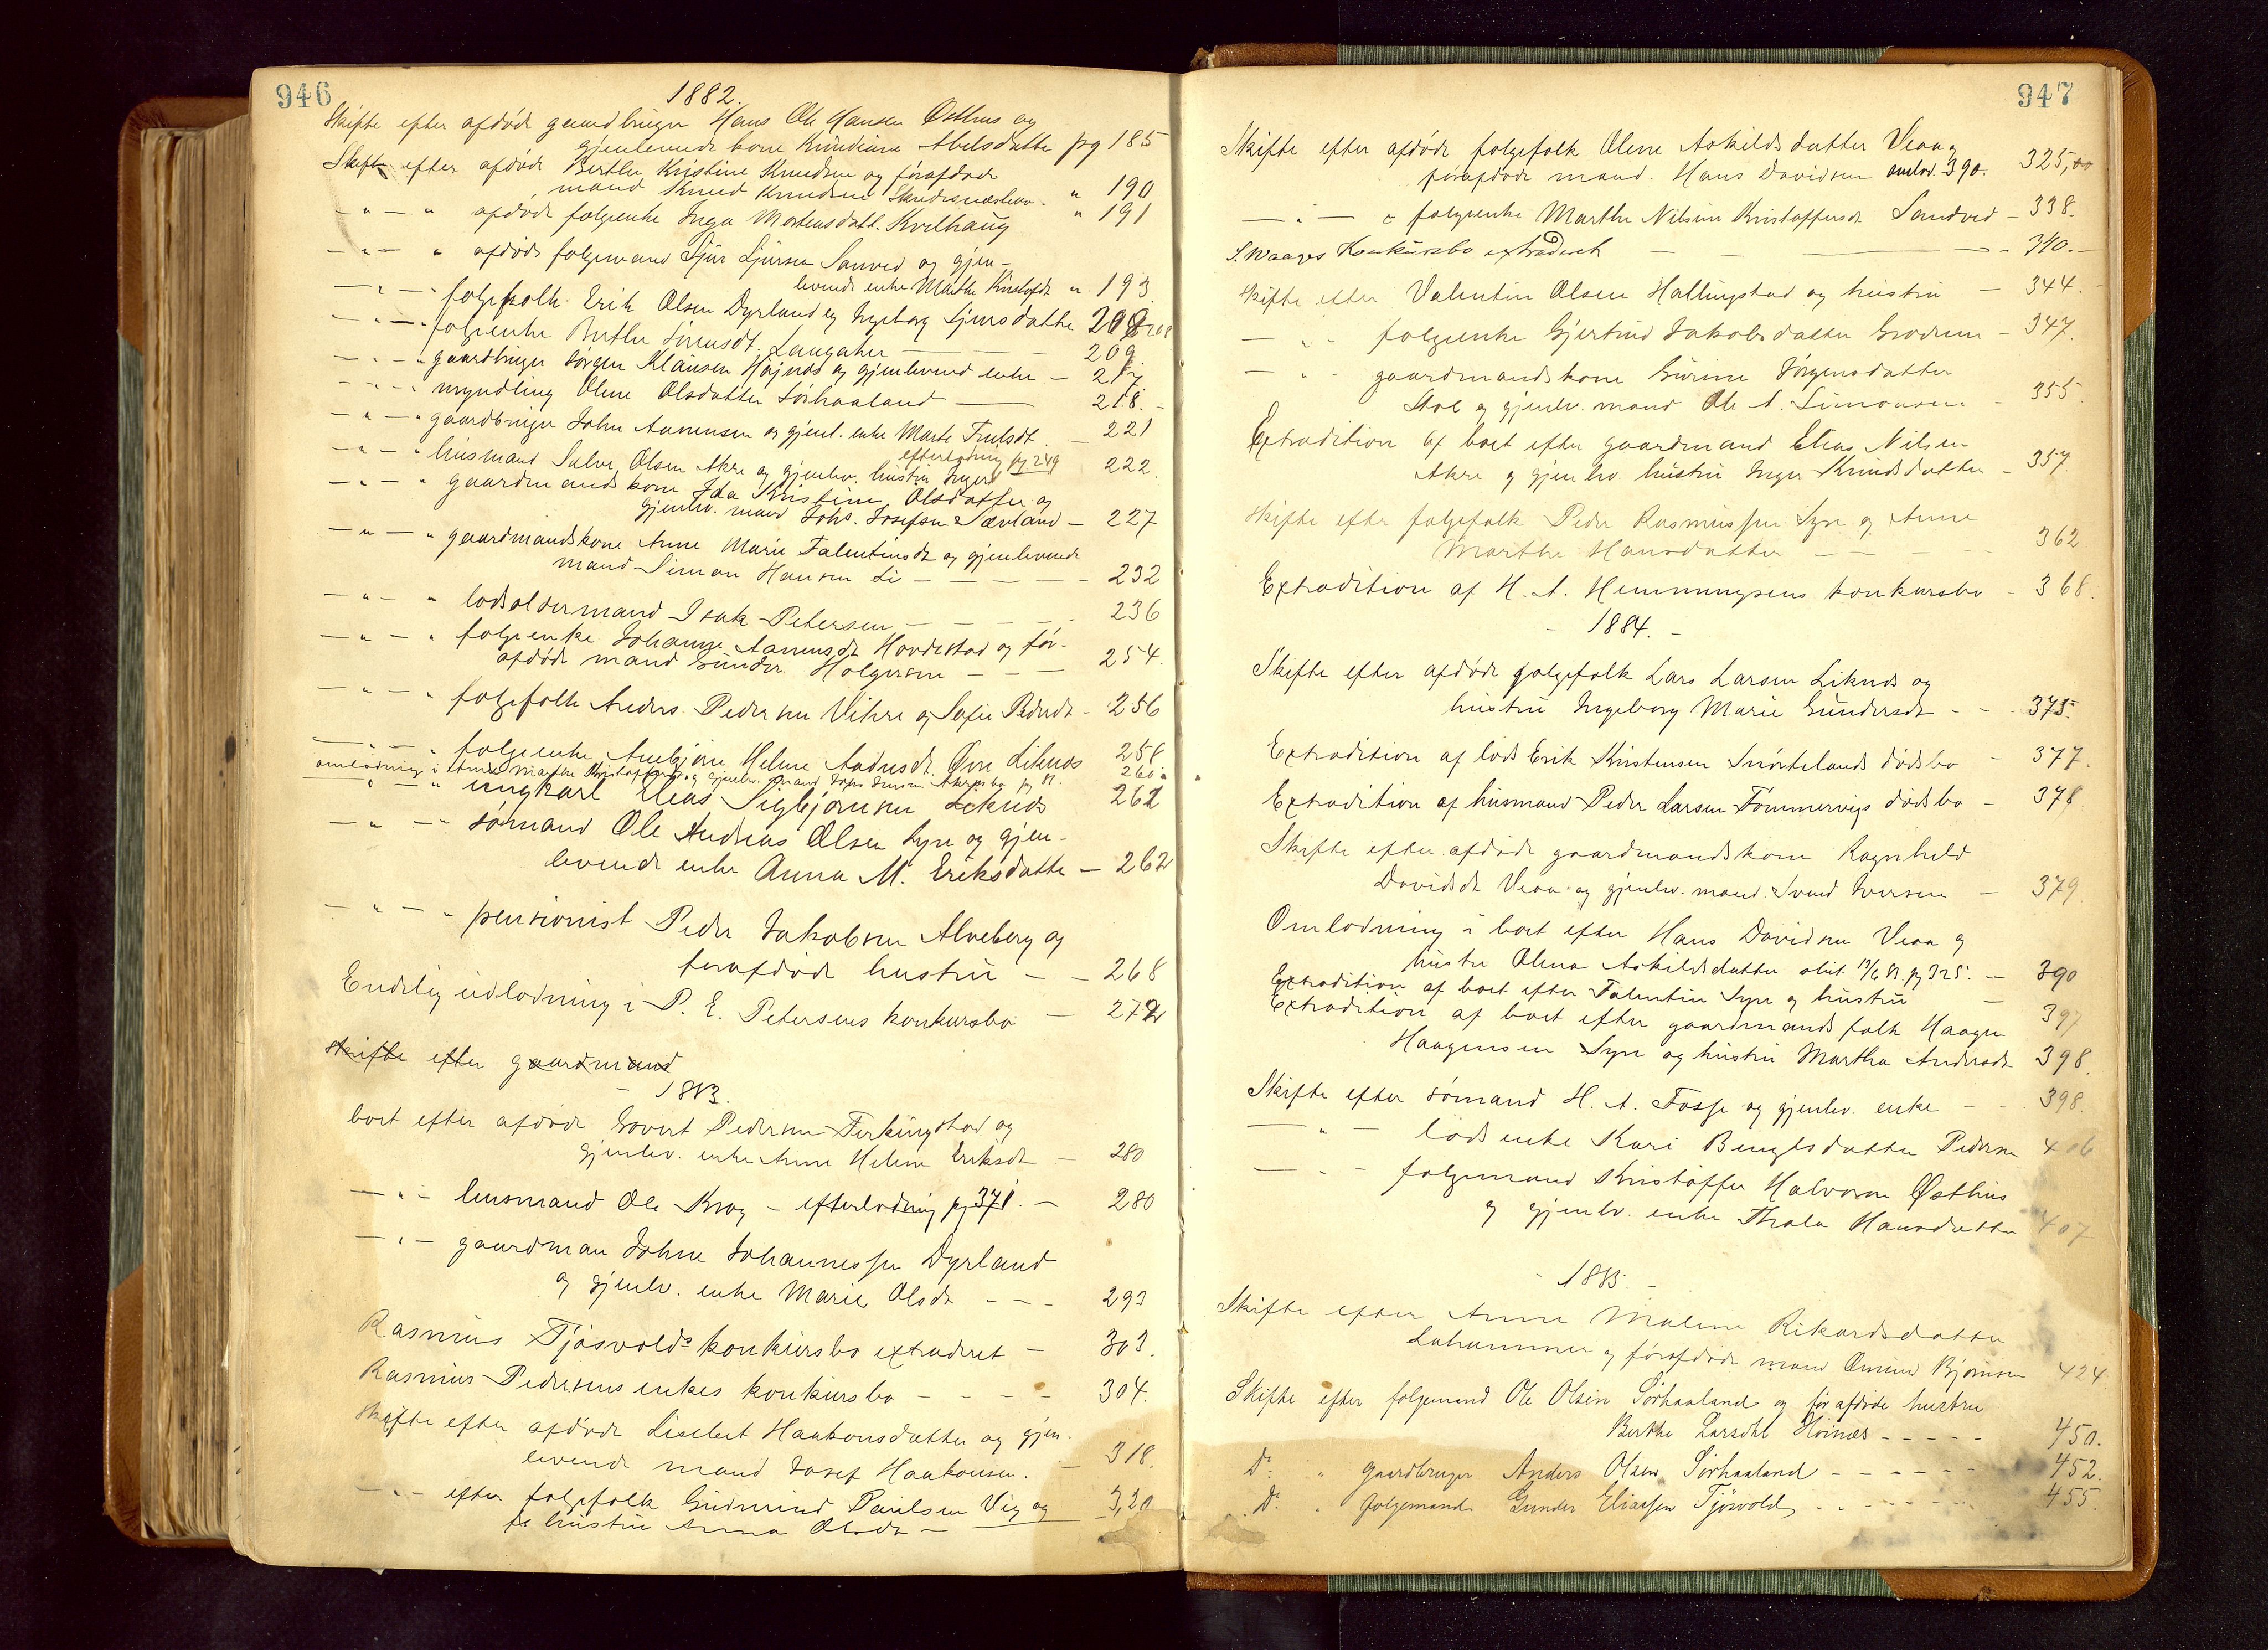 946
1882.
Skifte efter afdøde gaardbruger Hans Ole Hansen Østhus og
gjenlevende kone Abelsdatter pg 185
Skifte efter afdøde Berthe Kristine Knudsen og førafdøde
mand Knud Knudsen " 190
— " — " afdøde folgeenke Inga Mortensdatt. Kvilhaug " 191
— " — " afdøde folgemand Sjur Sjursen Sanved og gjen-
levende enke Marthe Kristofsdt " 193.
— " — folgefolk Erik Olsen Dyrland og Ingeborg Sjursdatter 208
— " — folgeenke Berthe Sørensdt. Langaker — 209
— " — " gaardbruger Jørgen Klausen Højnæs og gjenlevend enke — 217
— " — " myndling Oline Olsdatter Sørhaaland — 218.-
— " — " gaardbruger John Aanensen og gjenl. enke Marte Trulsdt. — 221
efterlodning pg 249
— " — " husmand Salve Olsen Akre og gjenlev. hustru Inger 222.
— " — " gaardmandskone Ida Kristine Olsdatter og
gjenlev. mand Johs. Josefsen Sævland — 227
— " — " gaardmandskone Anne Marie Falentinsdt og gjenlevende
mand Simon Hansen Li — 232
— " — " lodsoldermand Isak Petersen — 236
— " — " folgeenke Johanne Aanensdt Hovdestad og før-
afdøde mand Gunder Holgersen — 254.
— " — " folgefolk Anders Pedersen Vikre og Sofie Pedersdt — 256
— " — " folgeenke Anbjøre Helene Andersdt. Øvre Liknes 258
omlodning i Anne Marthe Kristoffersdt og gjenlev. mand 260
" — " ungkarl Elias Sigbjørnsen Liknes 261
— " — " sømand Ole Andreas Olsen Syre og gjen-
levende enke Anna M. Eriksdatter — 262
— " — " pensionist Peder Jakobsen Alveberg og
førafdøde hustru — 268
Endelig udlodning i P. E. Petersens konkursbo — 272
Skifte efter gaardmand
1883.
boet efter afdøde Govert Pedersen Ferkingstad og
gjenlev. enke Anne Helene Eriksdt — 280
— " — husmand Ole Krog — efterlodning pg 371. — 280
— " — gaardman Johne Johannessen Dyrland
og gjenlev. enke Marie Olsdt — 293
Rasmus Tjøsvolds konkursbo extraderet — 303.
Rasmus Pedersens enkes konkursbo — 304.
Skifte efter afdøde Lisebet Haakonsdatter og gjen-
levende mand Josef Haakonsen. — 318.
— " — efter folgefolk Gudmund Paulsen Vig og 320
hustru Anna Olsdt —
947
Skifte efter afdøde folgefolk Olene Askildsdatter Veaa og
førafdøde mand. Hans Davidsen omlod. 390. 325,00
— " — " folgeenke Marthe Nilsine Kristoffersdt Sandved — 338.
S. Waages Konkursbo extraderet — 340.
Skifte efter Valentin Olsen Hallingstad og hustru — 344.
— " — folgeenke Gjertrud Jakobsdatter Grodem — 347.
— " — gaardmandskone Gurine Jørgensdatter
Stol og gjenlev. mand Ole A. Simonsen — 355.
Extradition af boet efter gaardmand Elias Nilsen
Akre og gjenlev. hustru Inger Knudsdatter — 357
Skifte efter folgefolk Peder Rasmussen Syre og Anne
Marthe Hansdatter — 362
Extradition af H. A. Hemmingsens konkursbo — 368.
— 1884. —
Skifte efter afdøde folgefolk Lars Larsen Liknes og
hustru Ingeborg Marie Gundersdt — 375.
Extradition af lods Erik Kristensen Snørtelands dødsbo — 377.
Extradition af husmand Peder Larsen Tømmervigs dødsbo — 378
Skifte efter afdøde gaardmandskone Ragnhild
Davidsdt Veaa og gjenlev. mand Svend Iversen — 379
Omlodning i boet efter Hans Davidsen Veaa og
hustru Olena Askildsdatter slut. pg 325. — 390
Extradition af boet efter Falentin Syre og hustru — 397
Extradition af boet efter gaardmandsfolk Haagen
Haagensen Syre og hustru Martha Andersdt 398.
Skifte efter sømand H. A. Fosse og gjenlev. enke — 398.
— " — lodsenke Kari Bengtsdatter Pedersen 406
— " — folgemand Kristoffer Halvorsen Østhus
og gjenlev. enke Thala Hansdatter 407
— 1885. —
Skifte efter Anne Malene Rikardsdatter
Lahammer og førafdøde mand Bjørnsen 424
Skifte efter folgemand Ole Olsen Sørhaaland og førafdøde hustru
Berthe Larsdtt Høines — 450.
Do. " gaardbruger Anders Olsen Sørhaaland — 452.
Do. " folgemand Gunder Eliassen Tjøsvold — 455.